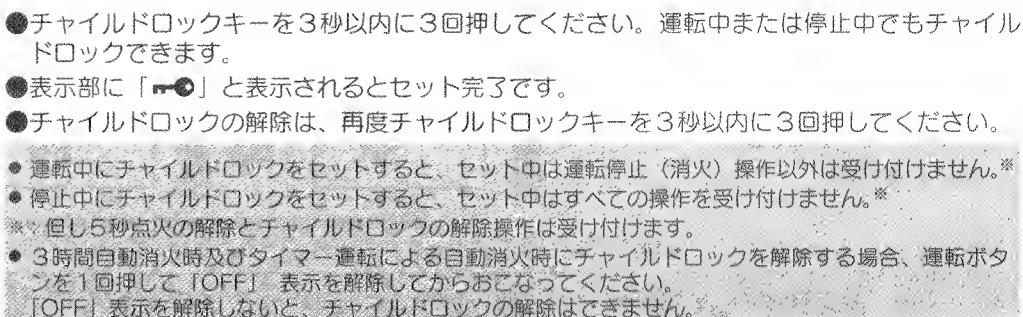 ●チャイルドロックキーを3秒以内に3回押してください。運転中または停止中でもチャイル
ドロックできます。
●表示部に「」と表示されるとセット完了です。
●チャイルドロックの解除は、再度チャイルドロックキーを3秒以内に3回押してください。
●運転中にチャイルドロックをセットすると、セット中は運転停止（消火）操作以外は受け付けません。※
●停止中にチャイルドロックをセットすると、セット中はすべての操作を受け付けません。※
※：但し5秒点火の解除とチャイルドロックの解除操作は受け付けます。
●3時間自動消火時及びタイマー運転による自動消火時にチャイルドロックを解除する場合、運転ボタ
ンを1回押して「OFF」表示を解除してからおこなってください。
「OFF」表示を解除しないと、チャイルドロックの解除はできません。